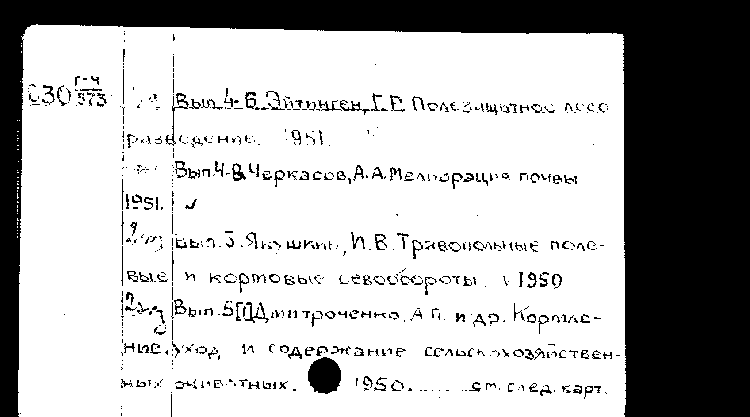 С30 Г-4/573 Вып. 4-б. Эйтинген, Г.Р. Полезащитное лесо
разведение. 1951.
Вып. 4-в. Черкасов, А.А. Мелиорация почвы
1951. ✓
2 экз Вып. 5. Якушкин, И.В. Травопольные поле-
вые и кормовые севообороты. 1950
2 экз Вып. 5[1] Дмитроченко, А.П. и др. Кормле-
ние, уход и содержание сельскохозяйствен-
ных животных. 1950. см. след. карт.